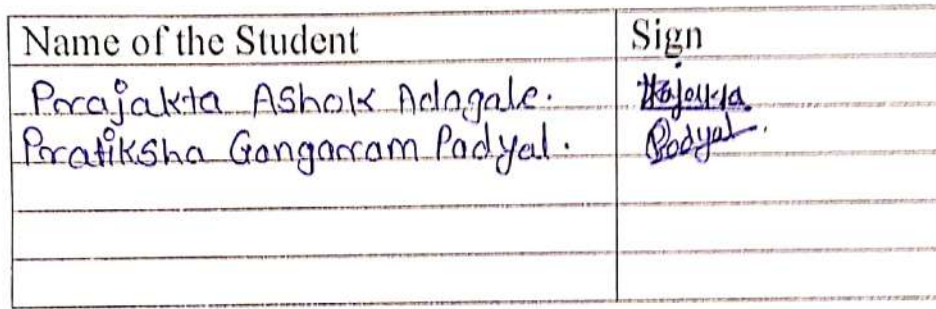 Name of the Student Sign
Prajakta Ashok Adagale. Prajakta
Pratiksha Gangaram Padyal. Padyal.